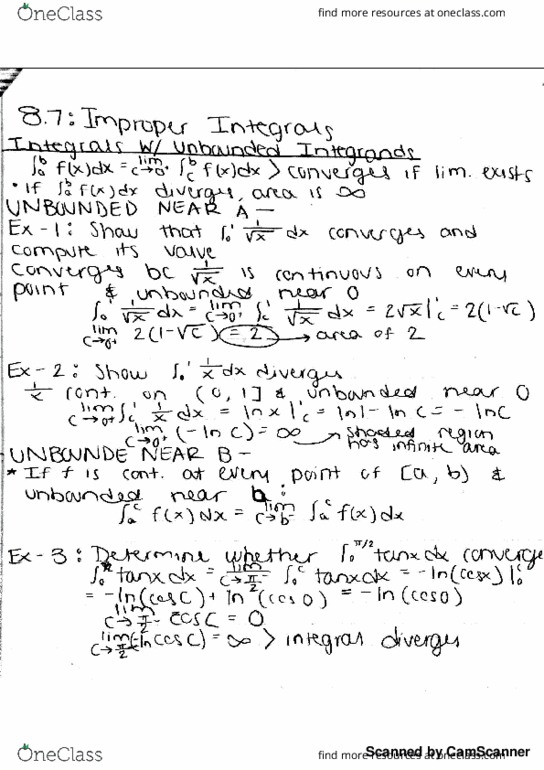 OneClass
find more resources at oneclass.com
8.7: Improper Integrals
Integrals w/ Unbounded Integrands
∫₀ᵇ f(x)dx = lim c→0⁺ ∫_c^b f(x)dx > converges if lim. exists
• If ∫₀ᵇ f(x)dx diverges, area is ∞
UNBOUNDED NEAR A –
Ex-1: Show that ∫₀¹ 1/√x dx converges and
compute its value
converges bc 1/√x is continuous on every
point & unbounded near 0
∫₀¹ 1/√x dx = lim c→0⁺ ∫_c^1 1/√x dx = 2√x |_c^1 = 2(1-√c)
lim c→0⁺ 2(1-√c) = 2 → area of 2
Ex-2: Show ∫₀¹ 1/x dx diverges
1/x cont. on (0, 1] & unbounded near 0
lim c→0⁺ ∫_c^1 1/x dx = ln x |_c^1 = ln 1 - ln c = - ln c
lim c→0⁺ (-ln c) = ∞ → shaded region
has infinite area
UNBOUNDE NEAR B –
* If f is cont. at every point of [a, b) &
unbounded near b:
∫_a^c f(x)dx = lim c→b⁻ ∫_a^c f(x)dx
Ex-3: Determine whether ∫₀^π/2 tanx dx converge
tanx dx = lim c→π/2⁻ ∫₀^c tanx dx = -ln(cosx) |₀^c
= -ln(cos c) + ln(cos 0) = -ln(cos0)
lim c→π/2⁻ cos c = 0
lim c→π/2 (-ln cos c) = ∞ > integral diverges
OneClass
find more resources at oneclass.com
Scanned by CamScanner